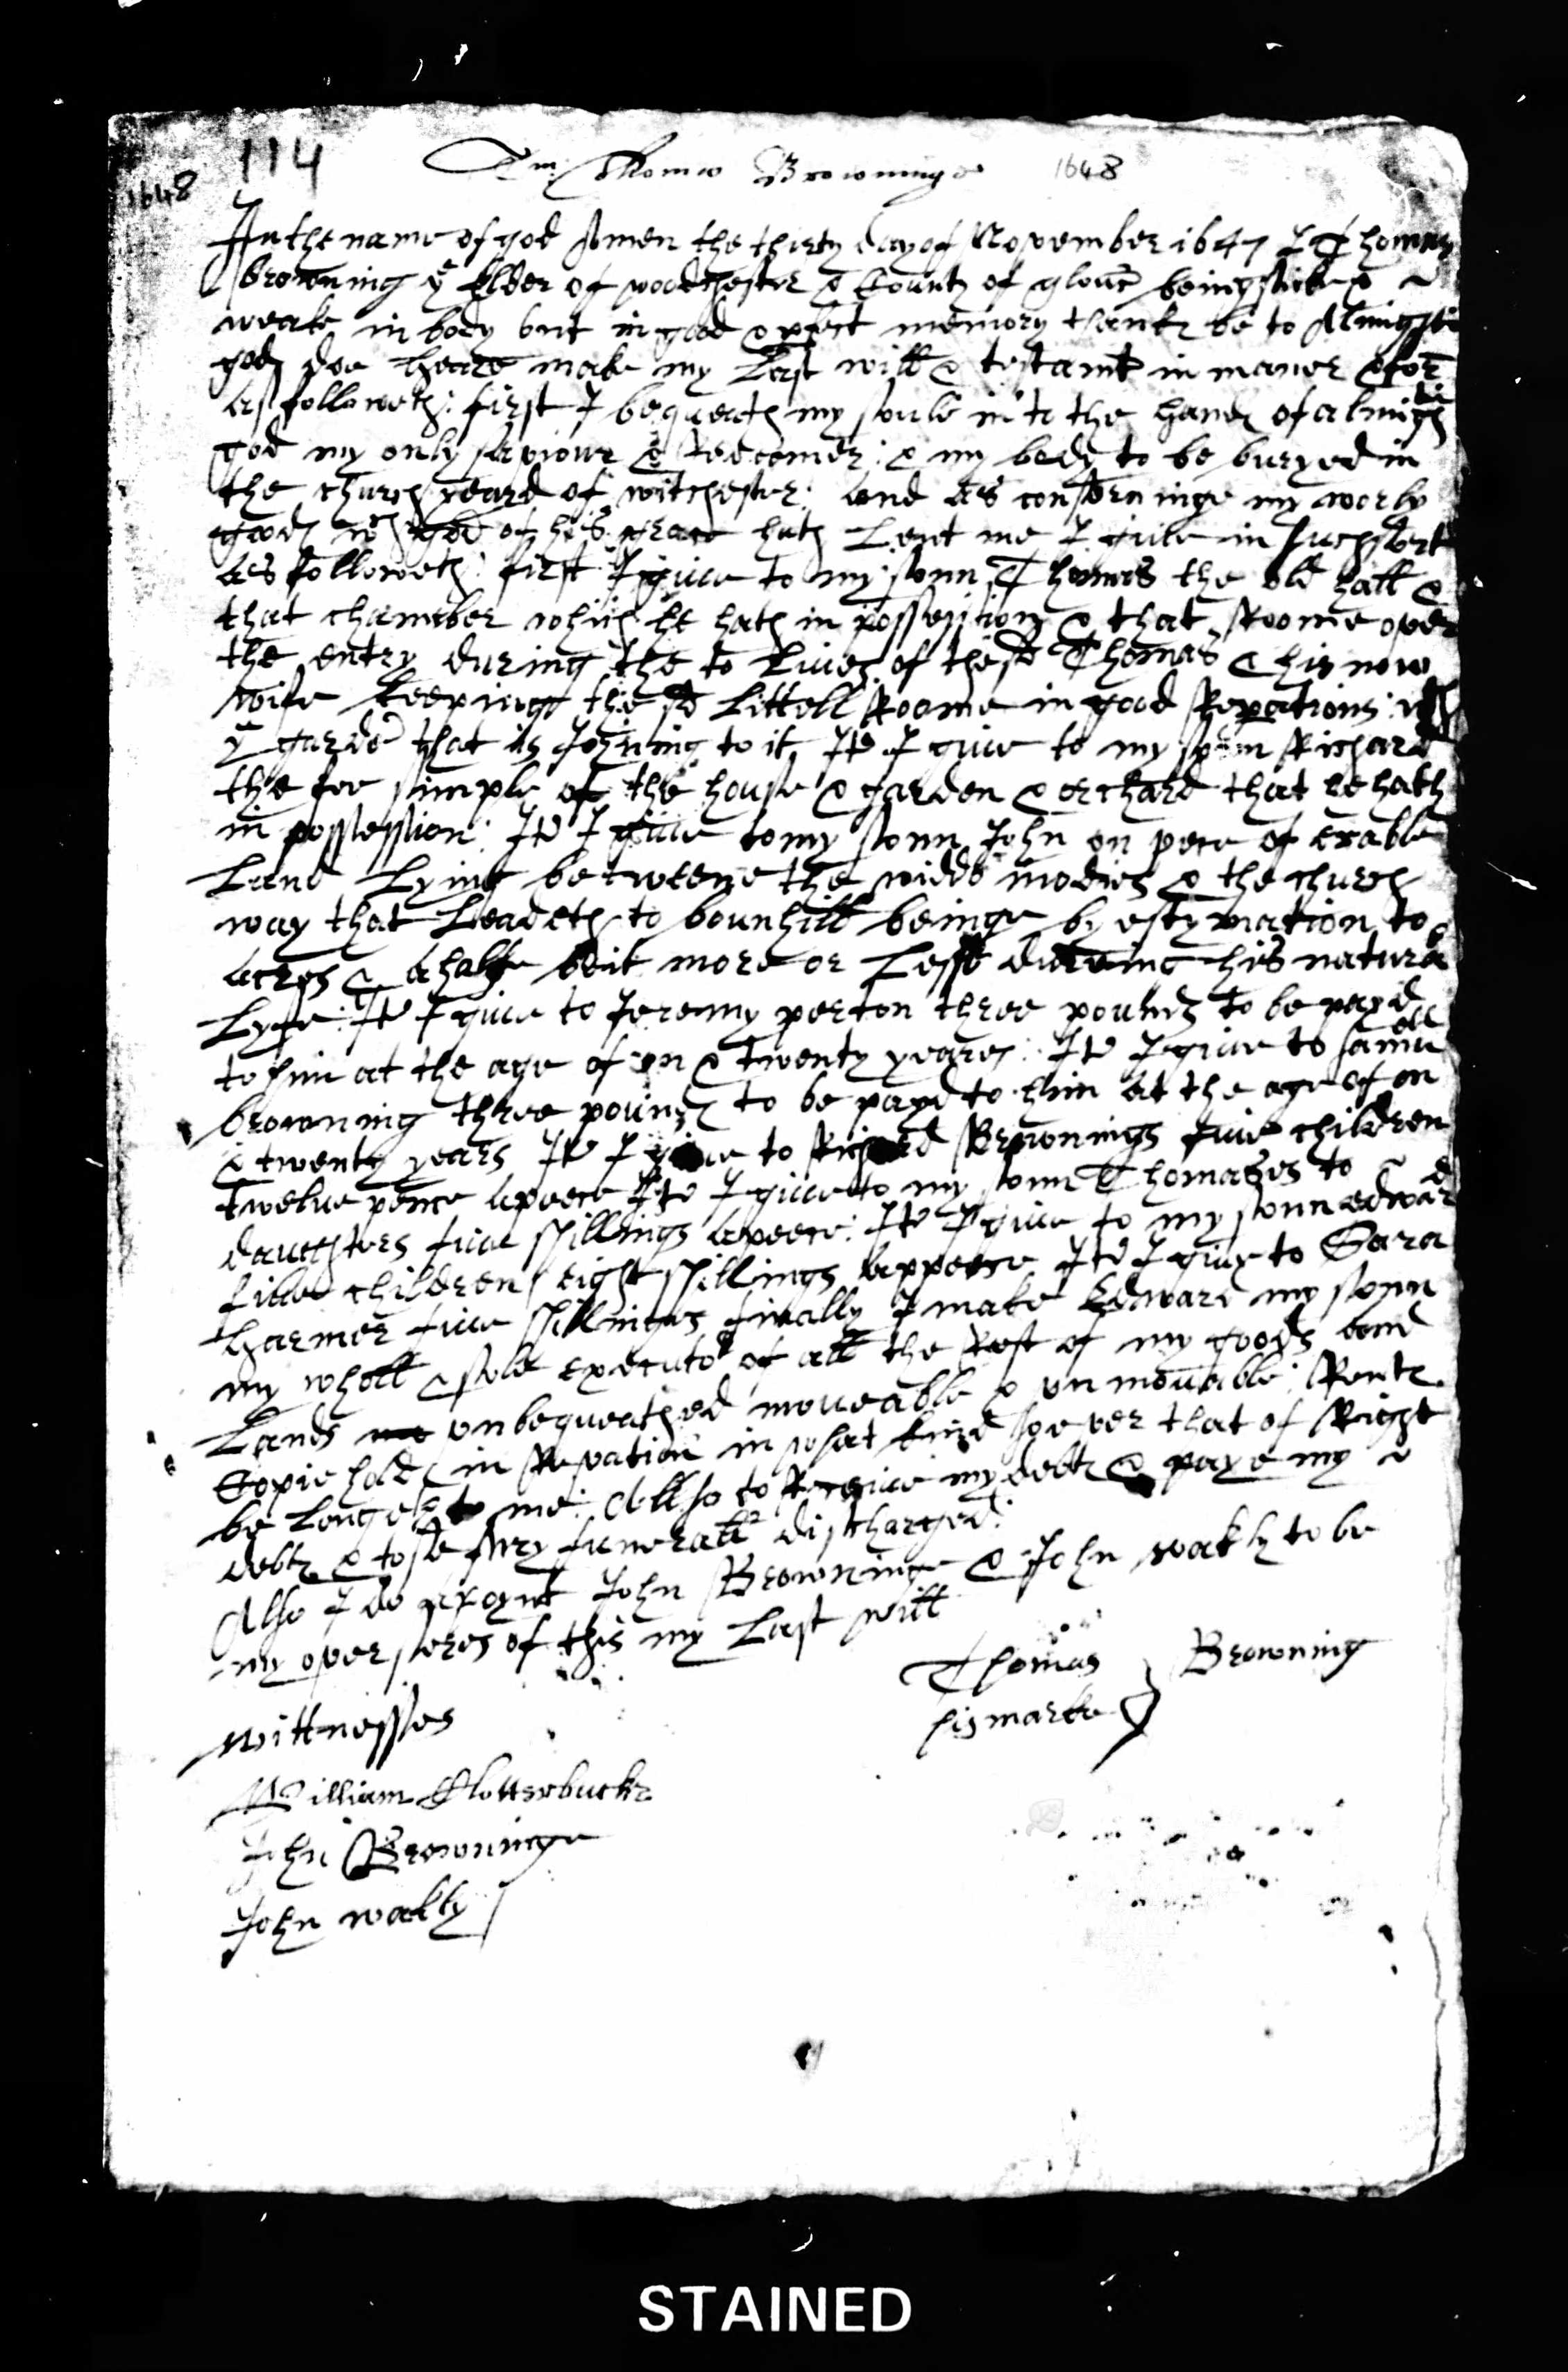 114
1648
Tm Thome Browninge 1648
In the name of god Amen the thirty day of November 1647 I Thomas
browning ye Elder of woodchester & County of glouc being sicke &
weake in body but in good & pfect memory thanks be to Almighti
god doe heare make my Last will & testamt in maner & for
as followeth: first I bequeath my soule into the hands of almighti
god my only saviour & Redeemer: & my body to be buryed in
the church yeard of witchester: and as conserninge my worly
goods wch god of his grace hath Lent me I give in such sort
as followeth: first I give to my sonn Thomas the old hall &
that chamber which he hath in possession & that Roome over
the entry during the to Lives of the sd Thomas & his now
wife keeping the sd Littell Roome in good Repations: wth
ye garde that is Joyning to it Itt I give to my sonn Richard
the fee simple of the house & garden & orchard that he hath
in possession: Itt I give to my sonn John on pece of erable
Land Lying betweene the midde modies & the church
way that Leadeth to bounhill beinge by estymation to
acres & a halfe be it more or Lesse dureing his natura
Lyfe: Itt I give to Jeremy perton three pounds to be payd
to him at the age of on & twenty yeares: Itt I give to samuell
browning three pounds to be payd to him at the age of on
& twenty years Itt I give to Richard Brownings five children
twelve pence apeece Itt I give to my sonn Thomases to
daughters five shillings apeece: Itt I give to my sonn edward
five children eight shillings appeece Itt I give to Sara
harmer five shillings finally I make Edward my sonn
my wholl & sole executor of all the Rest of my goods and
Lands unbequeathed moveable & unmovable: Rents
Copie holds in Revation in what kind soever that of Right
be Longeth to me: Allso to Receive my debts & paye my
debts & to se my funerall discharged:
Also I do apoynt John Browninge & John wakly to be
my overseres of this my Last will
Thomas } Browning
his marke
wittnesses
William Clotterbucke
John Browninge
John wakly
STAINED